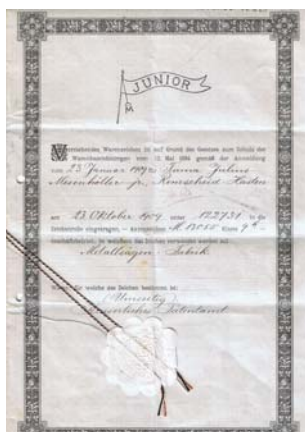 JUNIOR
Vorstehendes Warenzeichen ist auf Grund des Gesetzes zum Schutz der
Warenbezeichnungen vom 12. Mai 1894 gemäß der Anmeldung
vom 23 Januar 1909 Firma Julius
jr., Remscheid Hasten
am 23 Oktober 1909 unter 122731 in die
Zeichenrolle eingetragen. — Aktenzeichen M. Klasse 9
Geschäftsbetrieb, in welchem das Zeichen verwendet werden soll:
Fabrik
Waren, für welche das Zeichen bestimmt ist:
(Umseitig)
Kaiserliches Patentamt